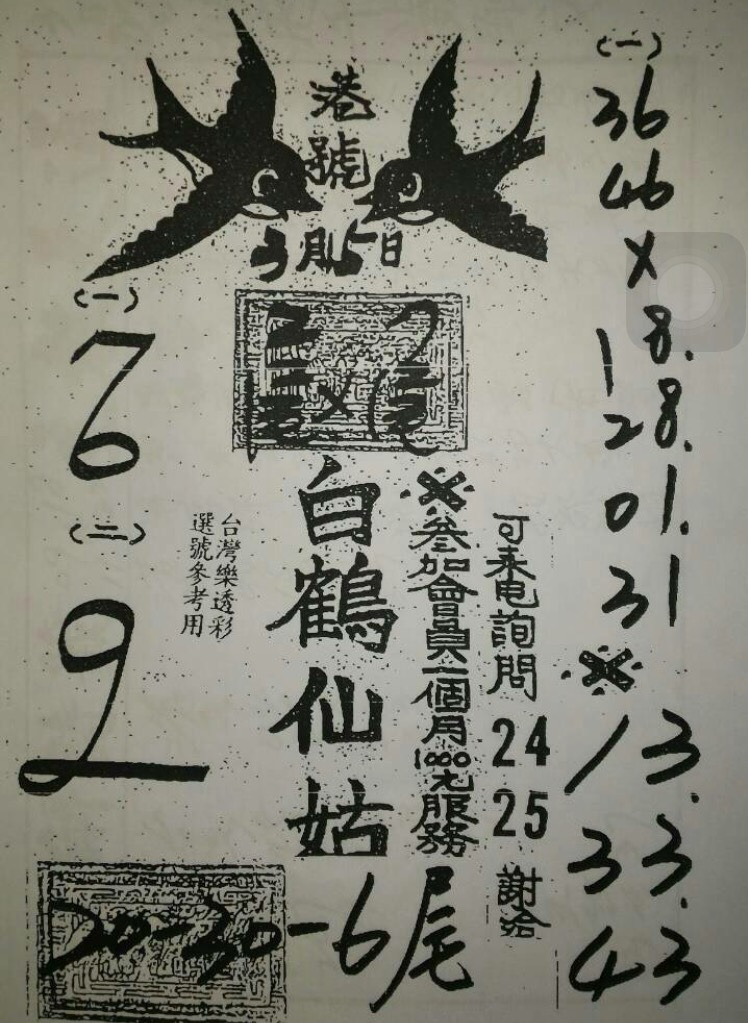 港號
3月15日
(一)
36
46
×
18.
28.
01.
31
※
13.
33.
43
可来电詢問
24
25
謝洽
※
參加會員一個月1000元服務
白鶴仙姑
台灣樂透彩
選號參考用
(一)
76
(二)
9
20-30-6尾